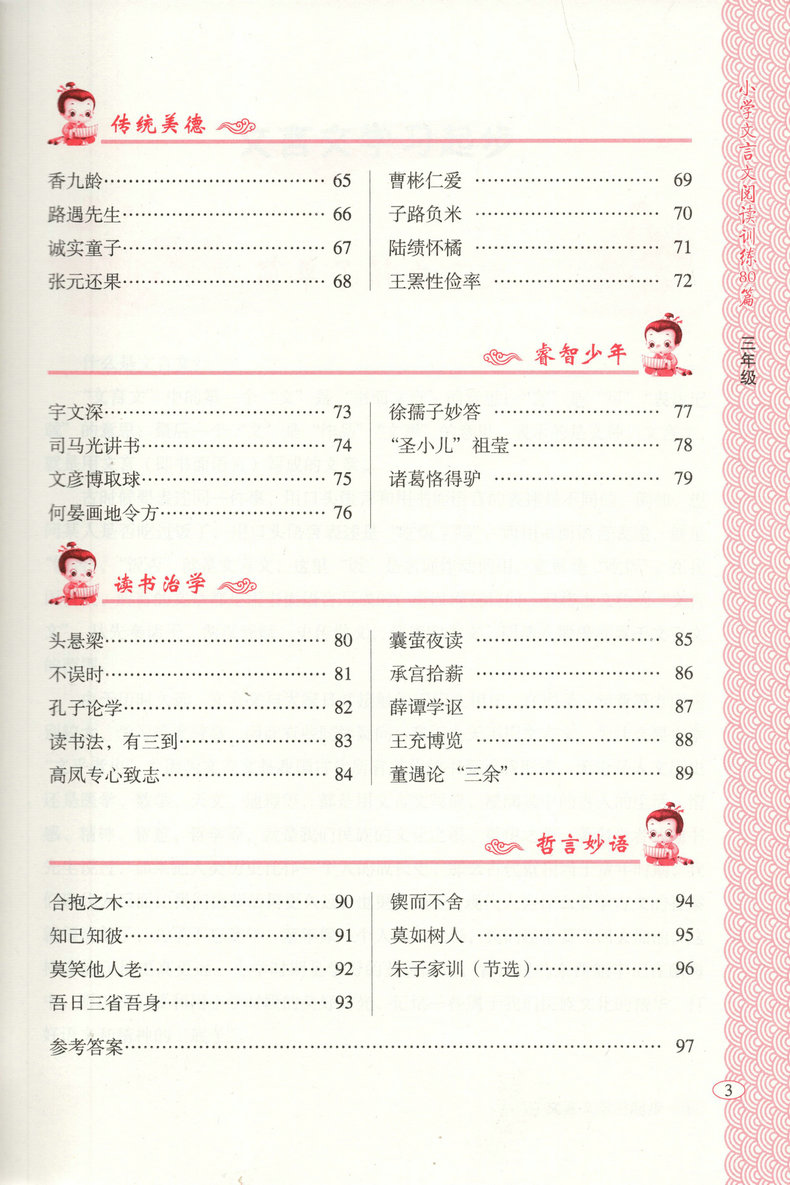 传统美德
香九龄…………………………… 65
路遇先生………………………… 66
诚实童子………………………… 67
张元还果………………………… 68
曹彬仁爱 ……………………… 69
子路负米 ……………………… 70
陆绩怀橘 ……………………… 71
王罴性俭率 …………………… 72
睿智少年
宇文深…………………………… 73
司马光讲书……………………… 74
文彦博取球……………………… 75
何晏画地令方…………………… 76
徐孺子妙答 …………………… 77
“圣小儿”祖莹………………… 78
诸葛恪得驴 …………………… 79
读书治学
头悬梁…………………………… 80
不误时…………………………… 81
孔子论学………………………… 82
读书法，有三到………………… 83
高凤专心致志…………………… 84
囊萤夜读 ……………………… 85
承宫拾薪 ……………………… 86
薛谭学讴 ……………………… 87
王充博览 ……………………… 88
董遇论“三余”………………… 89
哲言妙语
合抱之木………………………… 90
知己知彼………………………… 91
莫笑他人老……………………… 92
吾日三省吾身…………………… 93
锲而不舍 ……………………… 94
莫如树人 ……………………… 95
朱子家训（节选）……………… 96
参考答案………………………………………………………… 97
小学文言文阅读训练80篇 三年级
3